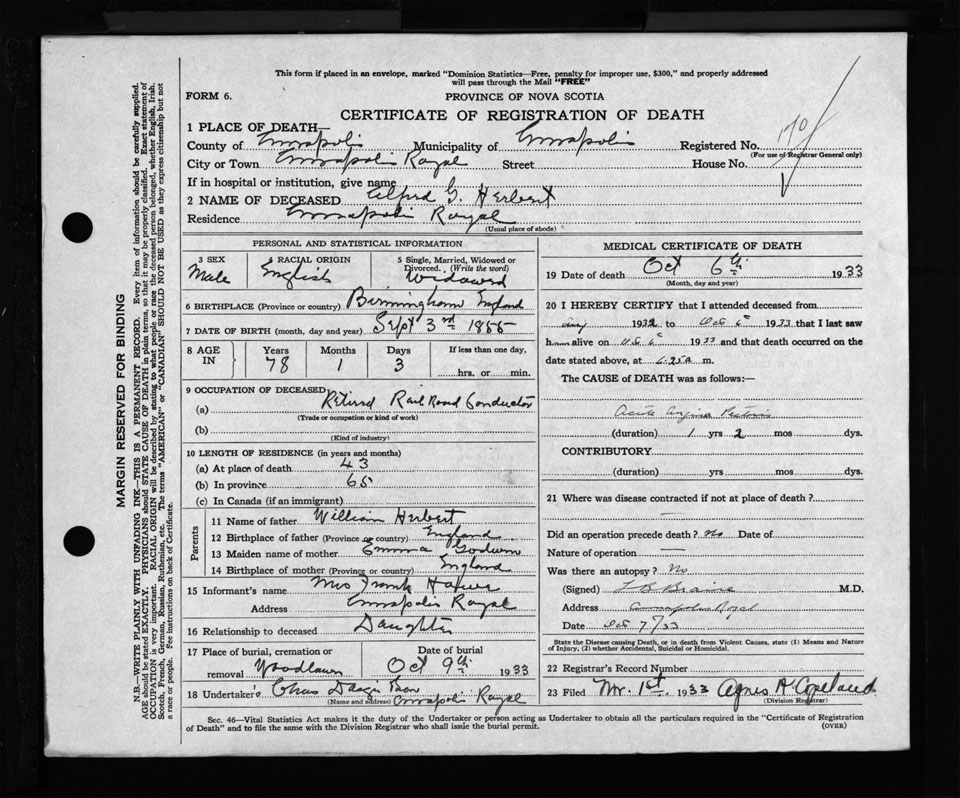 This form if placed in an envelope, marked "Dominion Statistics—Free, penalty for improper use, $300," and properly addressed
will pass through the Mail "FREE"
FORM 6.
PROVINCE OF NOVA SCOTIA
CERTIFICATE OF REGISTRATION OF DEATH
1 PLACE OF DEATH—
County of Annapolis Municipality of Annapolis Registered No. 170
(For use of Registrar General only)
City or Town Annapolis Royal Street House No.
If in hospital or institution, give name
2 NAME OF DECEASED Alfred G. Herbert
Residence Annapolis Royal
(Usual place of abode)
PERSONAL AND STATISTICAL INFORMATION
3 SEX
Male
4 RACIAL ORIGIN
English
5 Single, Married, Widowed or
Divorced. (Write the word)
Widowed
6 BIRTHPLACE (Province or country) Birmingham England
7 DATE OF BIRTH (month, day and year) Sept 3rd 1855
8 AGE IN
Years Months Days If less than one day.
78 1 3 hrs. or min.
9 OCCUPATION OF DECEASED
(a) Retired Rail Road Conductor
(Trade or occupation or kind of work)
(b)
(Kind of industry)
10 LENGTH OF RESIDENCE (in years and months)
(a) At place of death 43
(b) In province 65
(c) In Canada (if an immigrant)
Parents
11 Name of father William Herbert
12 Birthplace of father (Province or country) England
13 Maiden name of mother Emma Godwin
14 Birthplace of mother (Province or country) England
15 Informant's name Mrs Frank
Address Annapolis Royal
16 Relationship to deceased Daughter
17 Place of burial, cremation or
removal Woodlawn
Date of burial
Oct 9th 1933
18 Undertaker's Chas
(Name and address) Annapolis Royal
MEDICAL CERTIFICATE OF DEATH
19 Date of death Oct 6th 1933
(Month, day and year)
20 I HEREBY CERTIFY that I attended deceased from
1932 to Oct 6 1933 that I last saw
h alive on Oct 6 1933 and that death occurred on the
date stated above, at 6.25 a m.
The CAUSE of DEATH was as follows:—
Acute Angina Pectoris
(duration) 1 yrs 2 mos dys.
CONTRIBUTORY
(duration) yrs mos dys.
21 Where was disease contracted if not at place of death?
Did an operation precede death? No Date of
Nature of operation —
Was there an autopsy? No
(Signed) M.D.
Address Annapolis Royal
Date Oct 7/33
State the Disease causing Death, or in death from Violent Causes, state (1) Means and Nature
of Injury, (2) whether Accidental, Suicidal or Homicidal.
22 Registrar's Record Number
23 Filed 1st 1933 Agnes A Copeland
(Division Registrar)
Sec. 46—Vital Statistics Act makes it the duty of the Undertaker or person acting as Undertaker to obtain all the particulars required in the "Certificate of Registration
of Death" and to file the same with the Division Registrar who shall issue the burial permit.
(OVER)
MARGIN RESERVED FOR BINDING
N.B.—WRITE PLAINLY WITH UNFADING INK—THIS IS A PERMANENT RECORD. Every item of information should be carefully supplied.
AGE should be stated EXACTLY. PHYSICIANS should STATE CAUSE OF DEATH in plain terms, so that it may be properly classified. Exact statement of
OCCUPATION is very important. RACIAL ORIGIN will be described by stating to what people or race the deceased person belonged, whether English, Irish,
Scotch, French, German, Russian, Ruthenian, etc. The terms "AMERICAN" or "CANADIAN" SHOULD NOT BE USED as they express citizenship but not
a race or people. See instructions on back of Certificate.